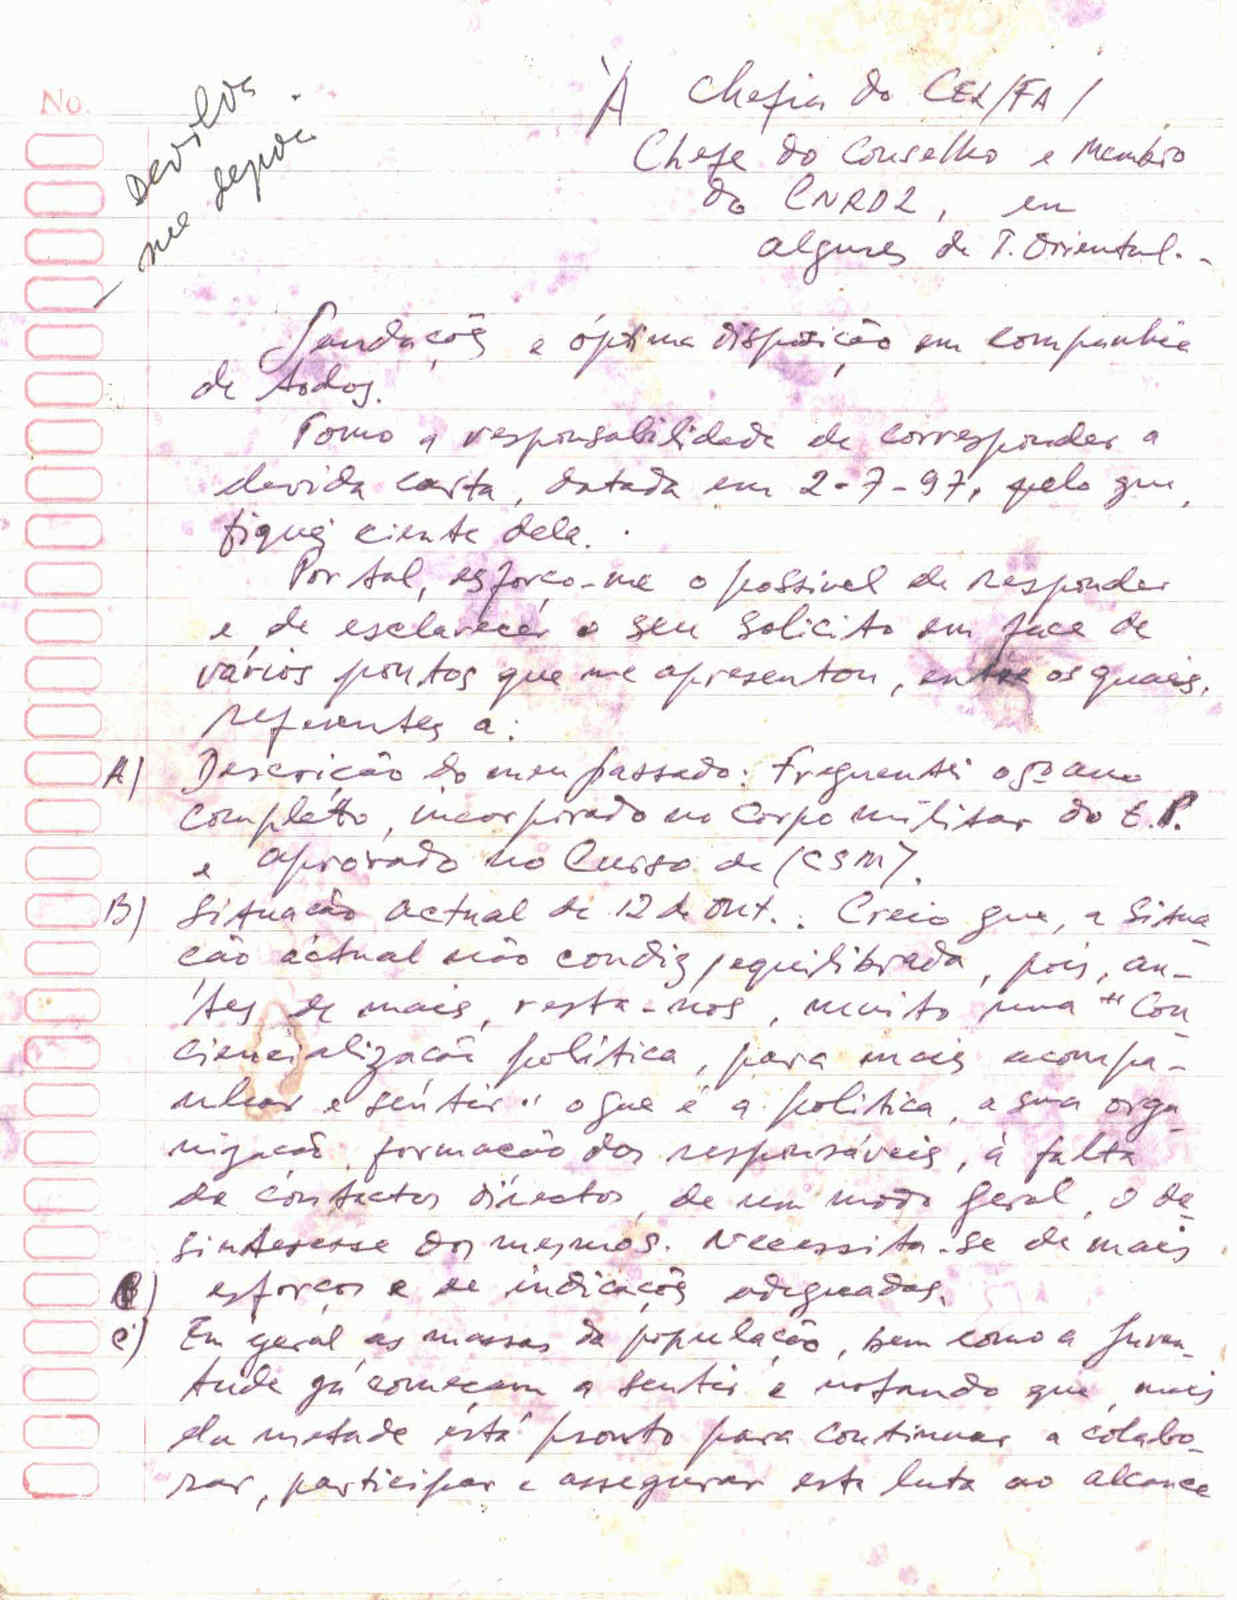 No.
Devolva
me depois
À Chefia do CEL/FA/
Chefe do Conselho e Membro
do CNRD2, em
algures de T. Oriental.-
Saudações e óptima disposição em companhia
de todos.
Tomo a responsabilidade de corresponder a
devida carta, datada em 2-7-97, pelo que,
fiquei ciente dela.
Por tal, esforço-me o possível de responder
e de esclarecer o seu solicito em face de
vários pontos que me apresentou, entre os quais,
referentes a:
A) Descrição do meu passado: Frequentei o 5º ano
completo, incorporado no corpo militar do E.P.
e aprovado no Curso de (CSM).
B) Situação actual de 12 de Out.: Creio que, a situa-
ção actual não condiz equilibrada, pois, an-
tes de mais, resta-nos, muito uma "Con-
ciencialização política, para mais acompa-
nhar e sentir" o que é a política, a sua orga-
nização, formação dos responsáveis, à falta
de contactos directos, de um modo geral, o de-
sinteresse dos mesmos. Necessita-se de mais
esforços e de indicações adequadas.
C) Em geral as massas da população, bem como a Juven-
tude já começam a sentir e notando que, mais
da metade está pronto para continuar a colabo-
rar, participar e assegurar esta luta ao alcance